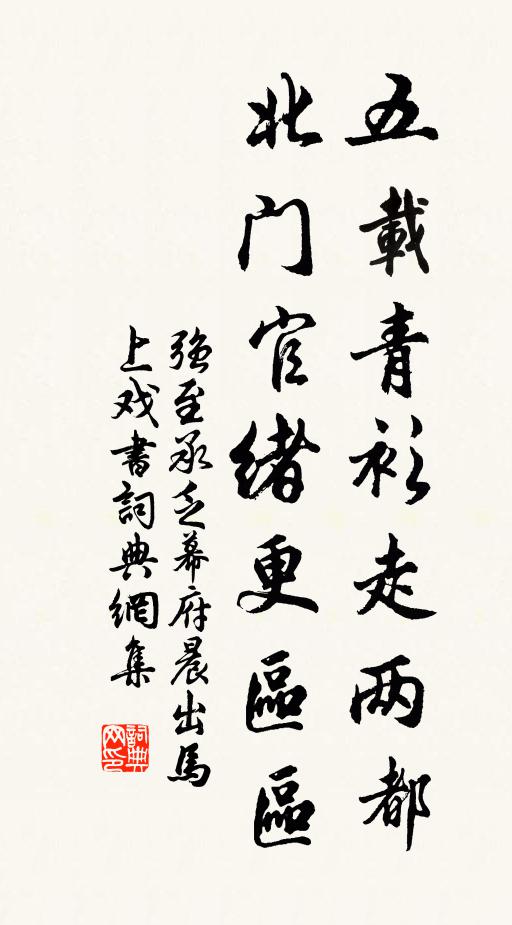 五載青衫走两都
北门官绪更區區
強至承乏幕府晨出馬
上戏書詞典網集
詞典
网印